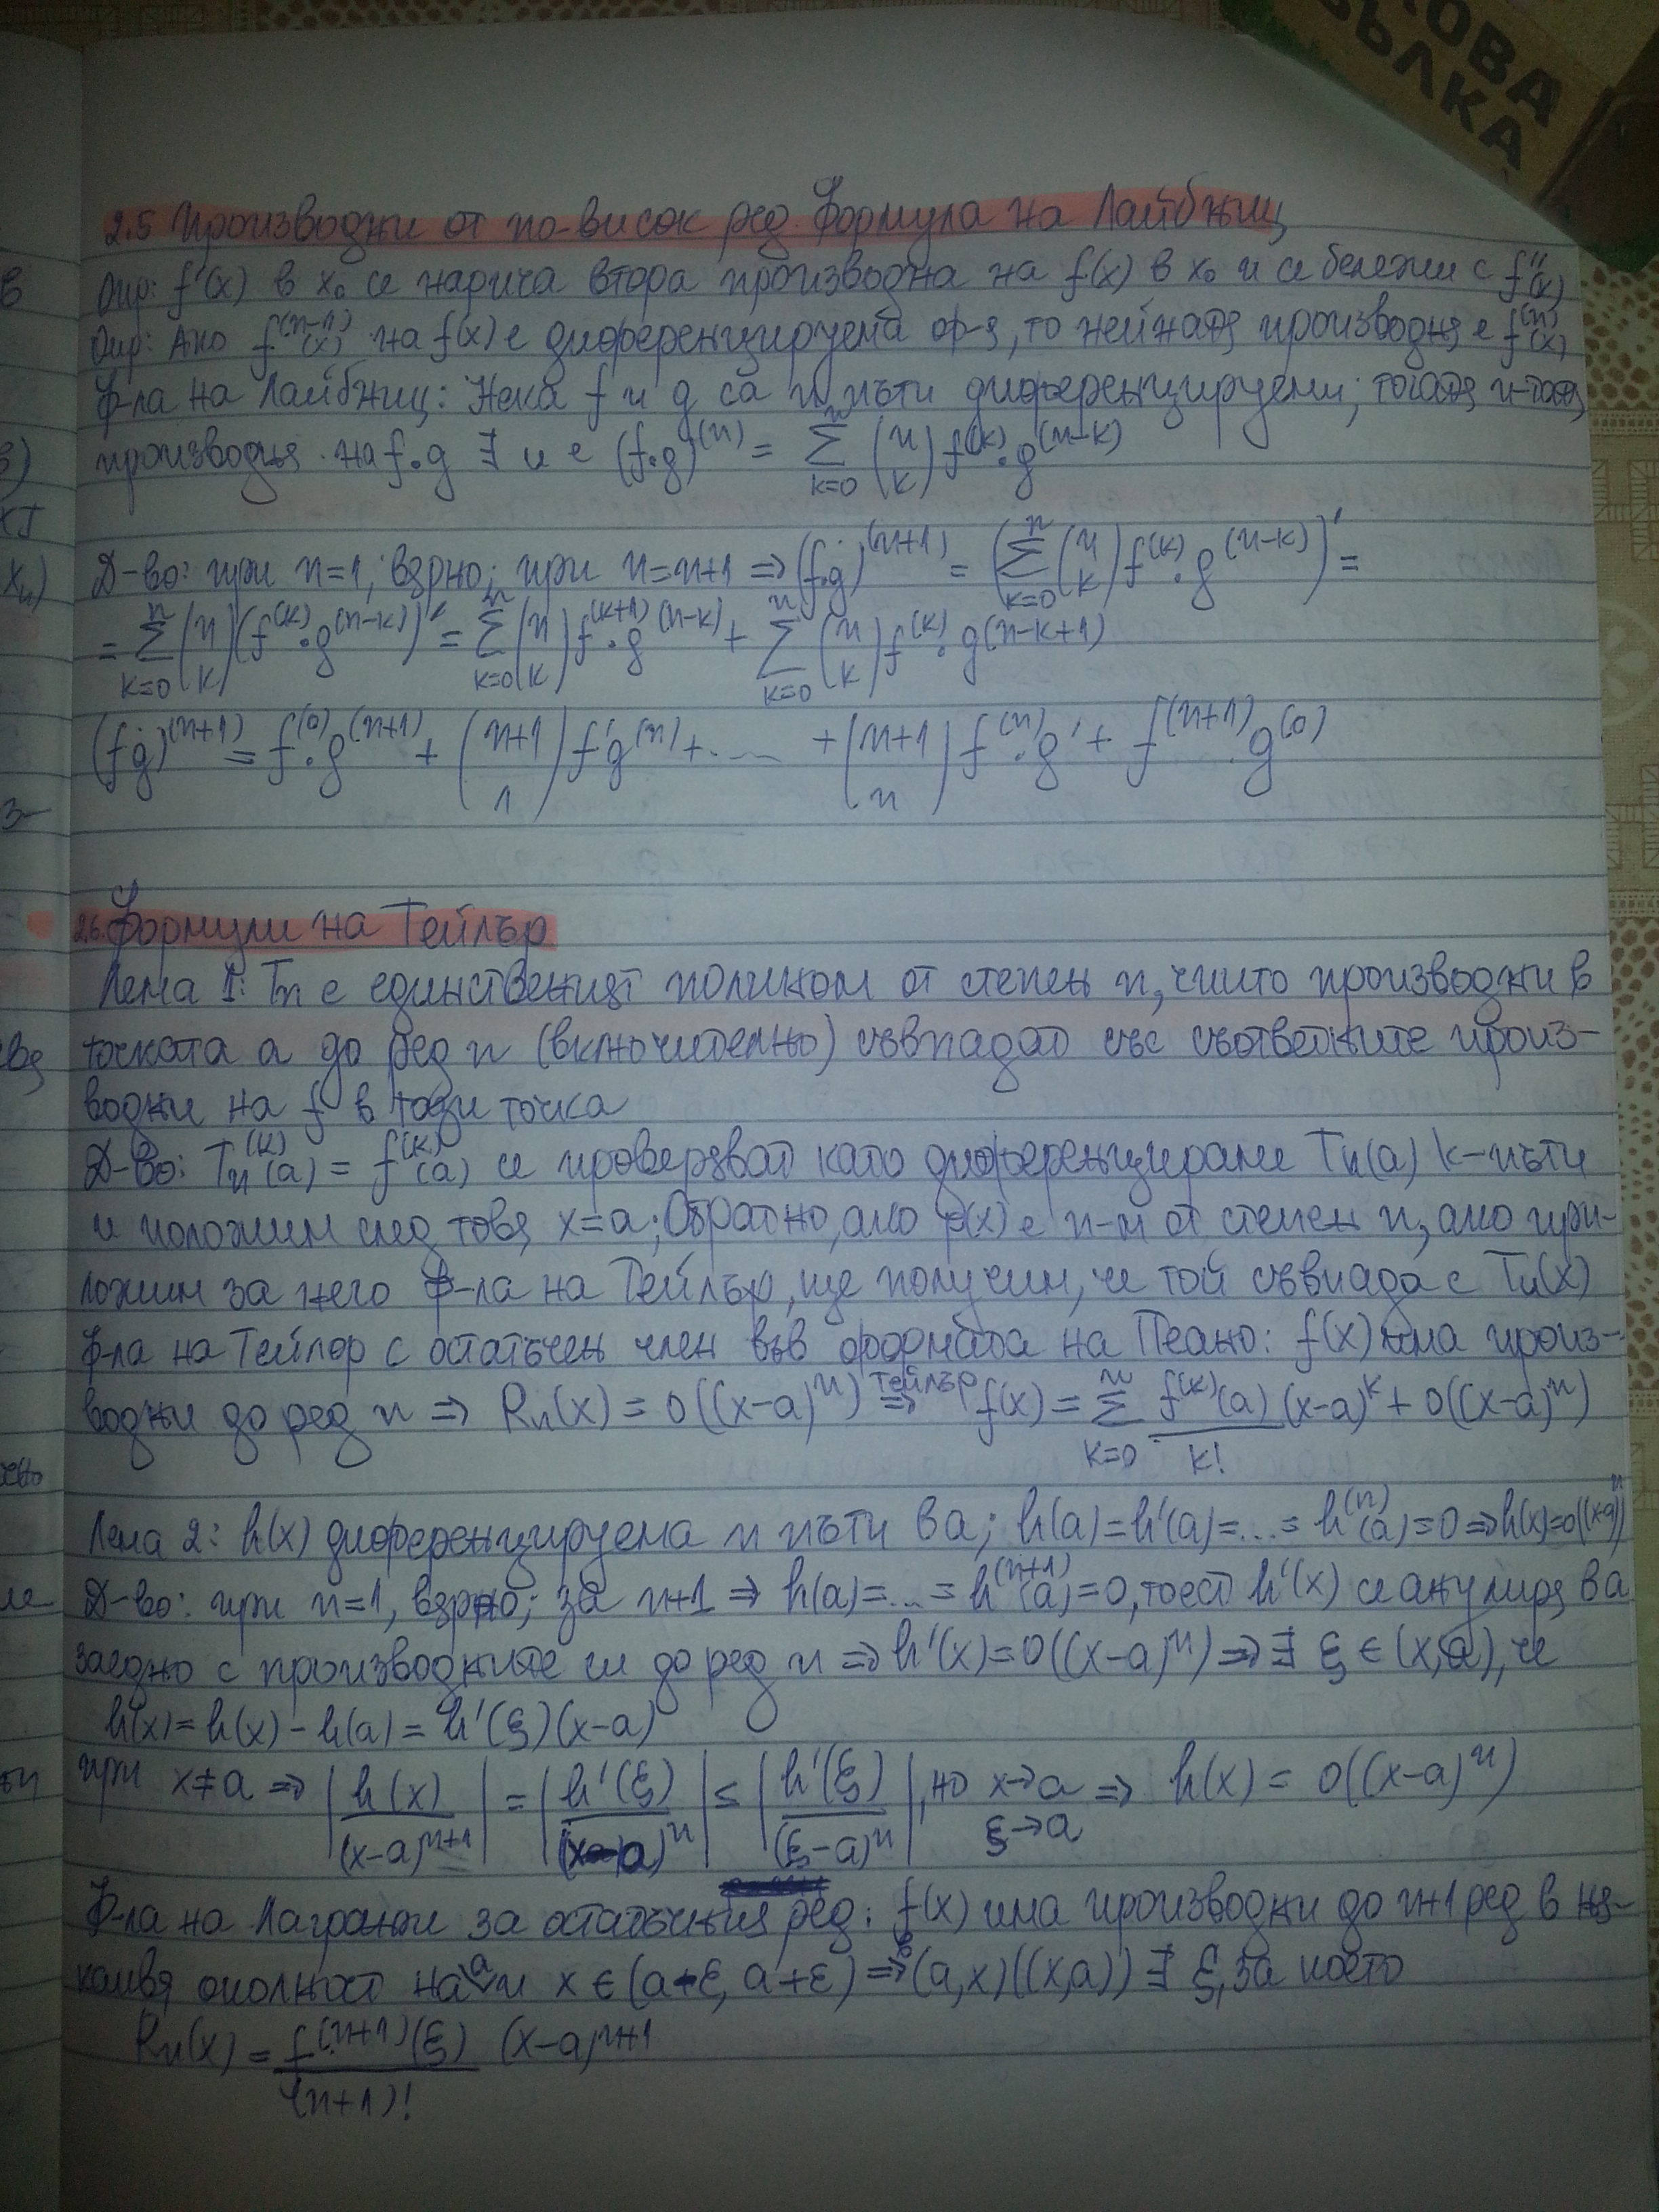 КОВА
ЪЛКА
2.5 Производни от по-висок ред. Формула на Лайбниц
Опр: f'(x) в x₀ се нарича втора производна на f(x) в x₀ и се бележи с f''(x)
Опр: Ако f^(n-1)(x) на f(x) е диференцируема ф-я, то нейната производня е f^(n)(x)
Ф-ла на Лайбниц: Нека f и g са n пъти диференцируеми; тогава n-тата
производня на f.g ∃ и е (f.g)^(n) = Σ_{k=0}^{n} (n k) f^(k).g^(n-k)
Д-во: при n=1, вярно; при n=n+1 ⇒ (f.g)^(n+1) = (Σ_{k=0}^{n} (n k) f^(k).g^(n-k))' =
= Σ_{k=0}^{n} (n k)(f^(k).g^(n-k))' = Σ_{k=0}^{n} (n k) f^(k+1).g^(n-k) + Σ_{k=0}^{n} (n k) f^(k).g^(n-k+1)
(f.g)^(n+1) = f^(0).g^(n+1) + (n+1 1) f'g^(n) + .... + (n+1 n) f^(n).g' + f^(n+1).g^(0)
2.6. Формули на Тейлър
Лема 1: Tn е единственият полином от степен n, чиито производни в
точката a до ред n (включително) съвпадат със съответните произ-
водни на f в тази точка
Д-во: Tn^(k)(a) = f^(k)(a) се проверяват като диференцираме Tn(a) k-пъти
и положим след това x=a; Обратно, ако p(x) е п-м от степен n, ако при-
ложим за него ф-ла на Тейлър, ще получим, че той съвпада с Tn(x)
Ф-ла на Тейлор с остатъчен член във формата на Пеано: f(x) има произ-
водни до ред n ⇒ Rn(x) = o((x-a)^n) ⇒ Тейлър f(x) = Σ_{k=0}^{n} f^(k)(a)/k! (x-a)^k + o((x-a)^n)
Лема 2: h(x) диференцируема n пъти в a; h(a)=h'(a)=...=h^(n)(a)=0 ⇒ h(x)=o((x-a)^n)
Д-во: при n=1, вярно; за n+1 ⇒ h(a)=...=h^(n+1)(a)=0, тоест h'(x) се анулиря в a
заедно с производните си до ред n ⇒ h'(x)=o((x-a)^n) ⇒ ∃ ξ ∈ (x,a), че
h(x) = h(x) - h(a) = h'(ξ)(x-a)
при x≠a ⇒ |h(x)/(x-a)^n+1| = |h'(ξ)/(x-a)^n| ≤ |h'(ξ)/(ξ-a)^n|, но x→a ξ→a ⇒ h(x) = o((x-a)^n)
Ф-ла на Лагранж за остатъчния ред: f(x) има производни до n+1 ред в ня-
каквя околност на a и x ∈ (a-ε, a+ε) ⇒ в (a,x)((x,a)) ∃ ξ, за което
Rn(x) = f^(n+1)(ξ)/(n+1)! (x-a)^n+1